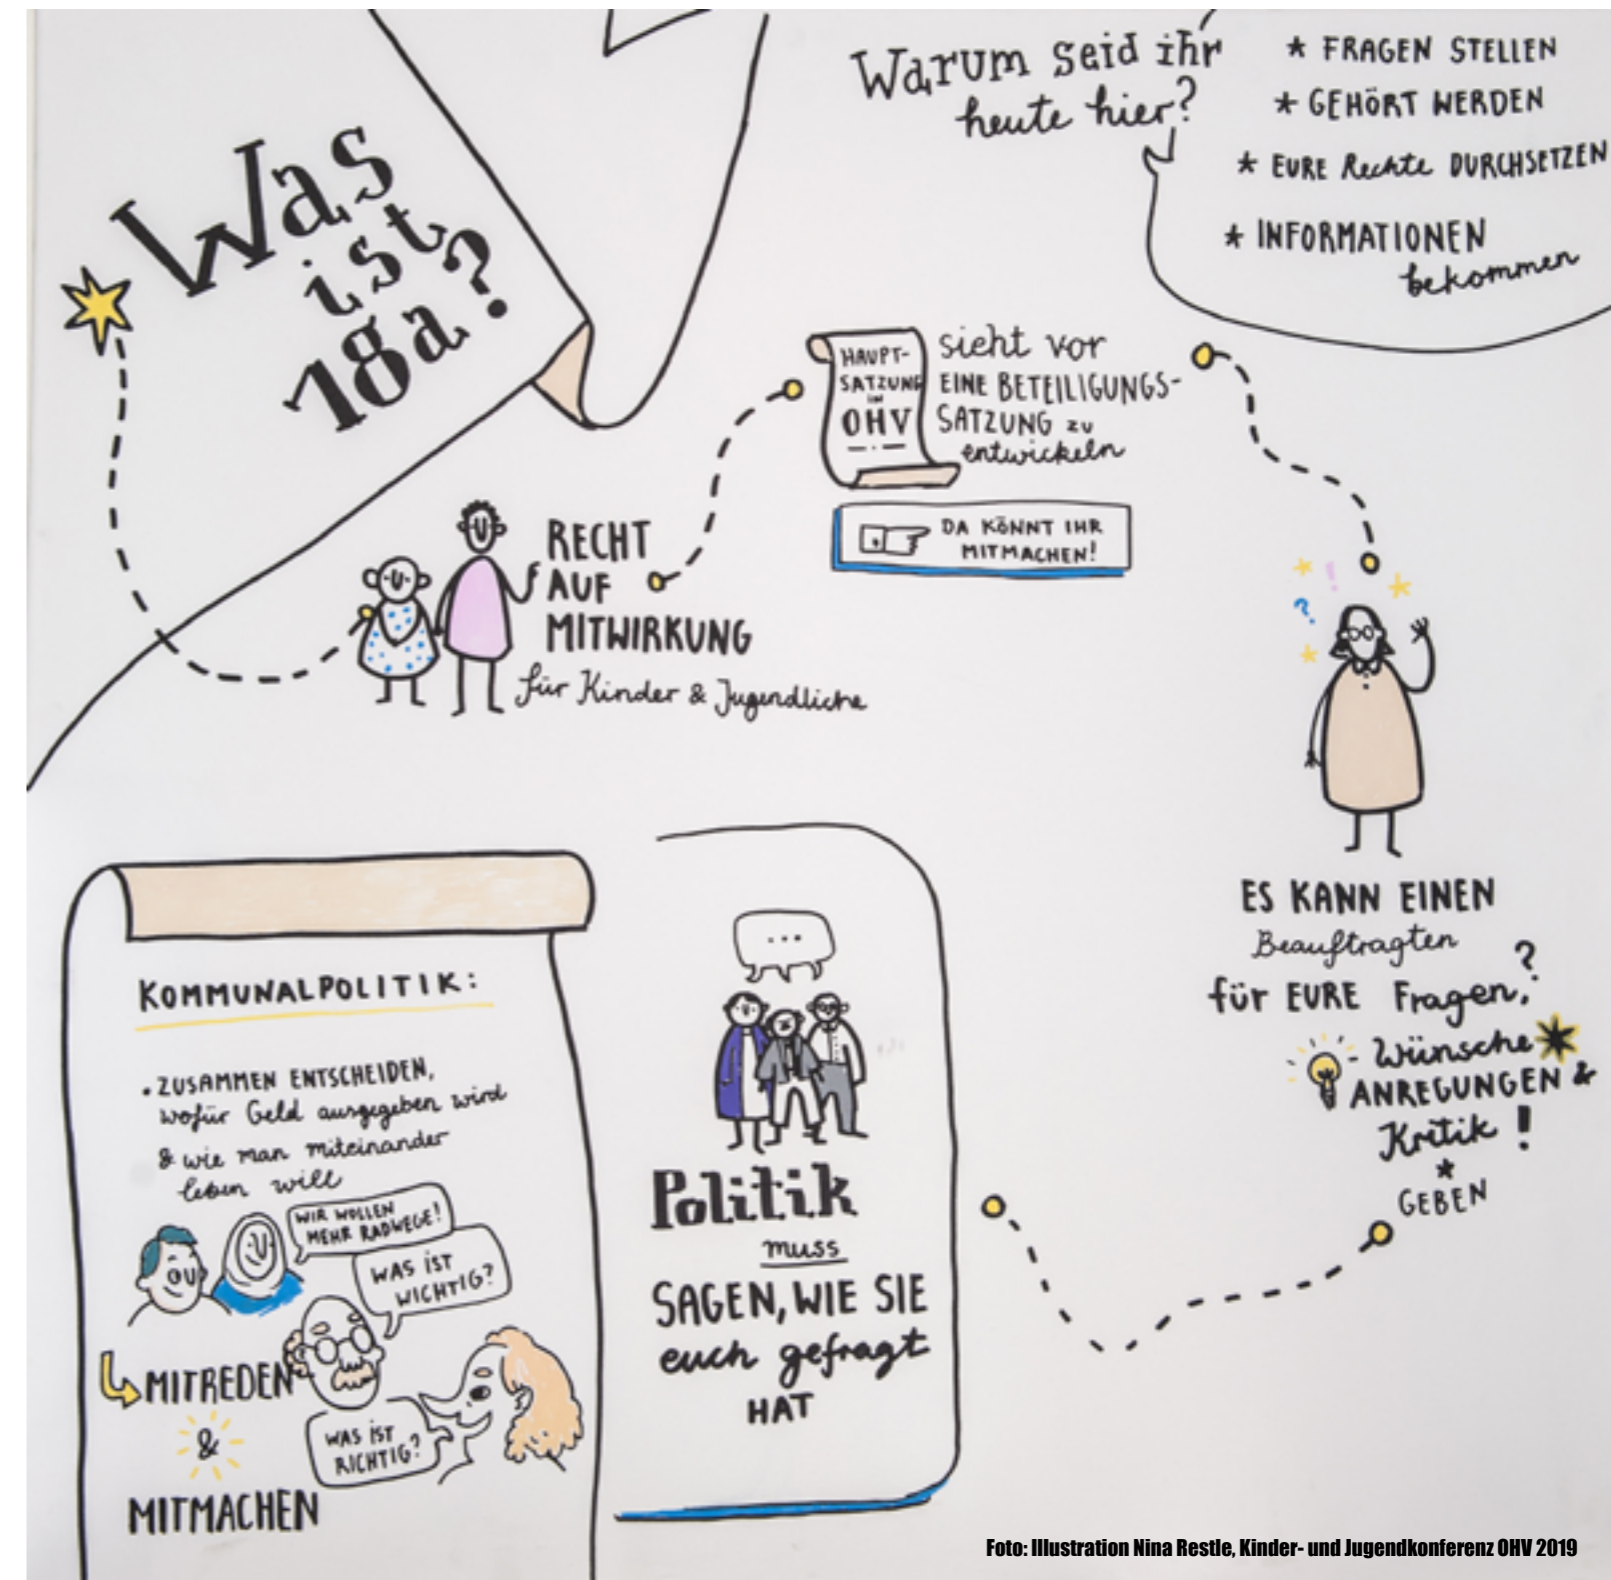 Was
ist
18a?
Warum seid ihr
heute hier?
* FRAGEN STELLEN
* GEHÖRT WERDEN
* EURE Rechte DURCHSETZEN
* INFORMATIONEN
bekommen
RECHT
AUF
MITWIRKUNG
für Kinder & Jugendliche
HAUPT-
SATZUNG
IN
OHV
sieht vor
EINE BETEILIGUNGS-
SATZUNG zu
entwickeln
DA KÖNNT IHR
MITMACHEN!
?
!
ES KANN EINEN
Beauftragten
für EURE Fragen,?
- Wünsche
ANREGUNGEN &
Kritik !
*
GEBEN
...
Politik
muss
SAGEN, WIE SIE
euch gefragt
HAT
KOMMUNALPOLITIK:
• ZUSAMMEN ENTSCHEIDEN,
wofür Geld ausgegeben wird
& wie man miteinander
leben will
WIR WOLLEN
MEHR RADWEGE!
WAS IST
WICHTIG?
MITREDEN
&
MITMACHEN
WAS IST
RICHTIG?
Foto: Illustration Nina Restle, Kinder- und Jugendkonferenz OHV 2019